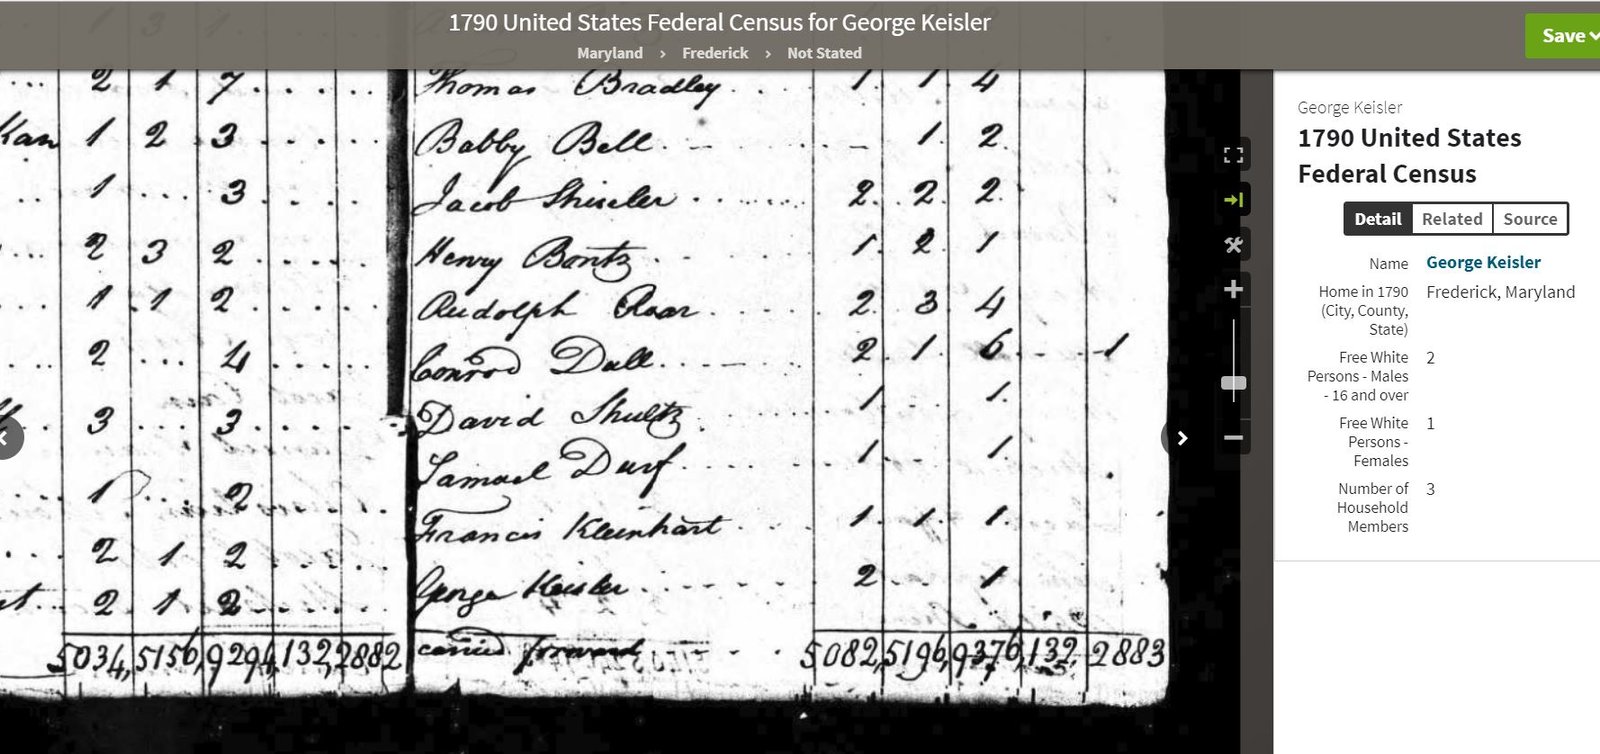 1790 United States Federal Census for George Keisler
Maryland > Frederick > Not Stated
Save
1 3 1
2 1 7
Kan 1 2 3
1 3
2 3 2
1 1 2
2 4
3 3
1 2
2 1 2
2 1 2
5034, 5156, 9294, 132, 2882
Thomas Bradley 1 1 4
Babby Bell 1 2
Jacob Shiseler 2 2 2
Henry Bontz 1 2 1
Rudolph Roar 2 3 4
Conrod Dull 2 1 6 1
David Shultz 1 1
Samuel Durf 1 1
Francis Kleinhart 1 1 1
George Keisler 2 1
carried forward 5082, 5196, 9376, 132, 2883
George Keisler
1790 United States
Federal Census
Detail Related Source
Name George Keisler
Home in 1790 Frederick, Maryland
(City, County,
State)
Free White 2
Persons - Males
- 16 and over
Free White 1
Persons -
Females
Number of 3
Household
Members